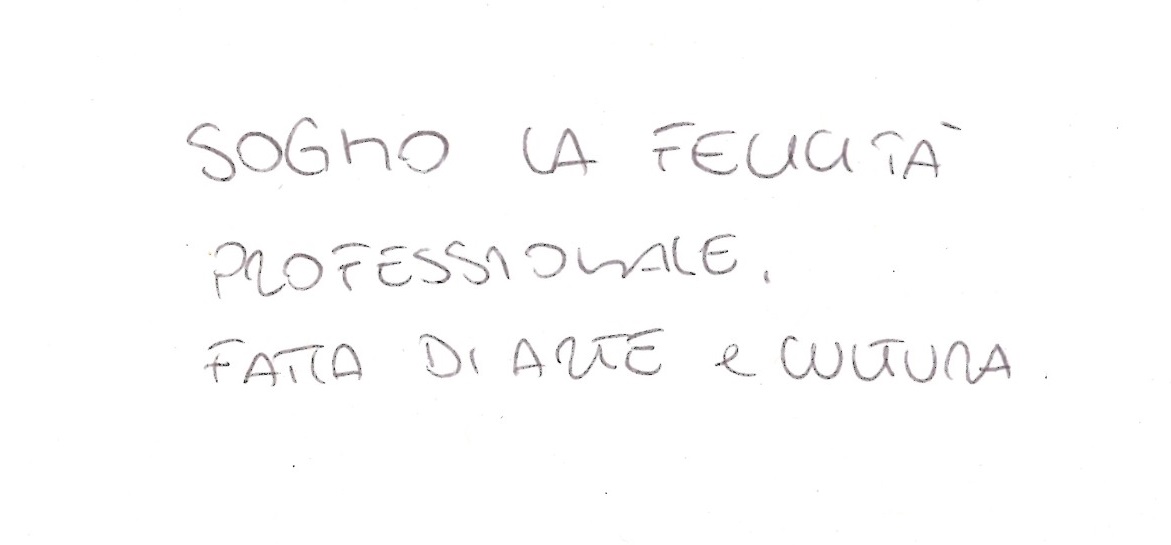 SOGNO LA FELICITÀ
PROFESSIONALE.
FATTA DI ARTE e CULTURA.